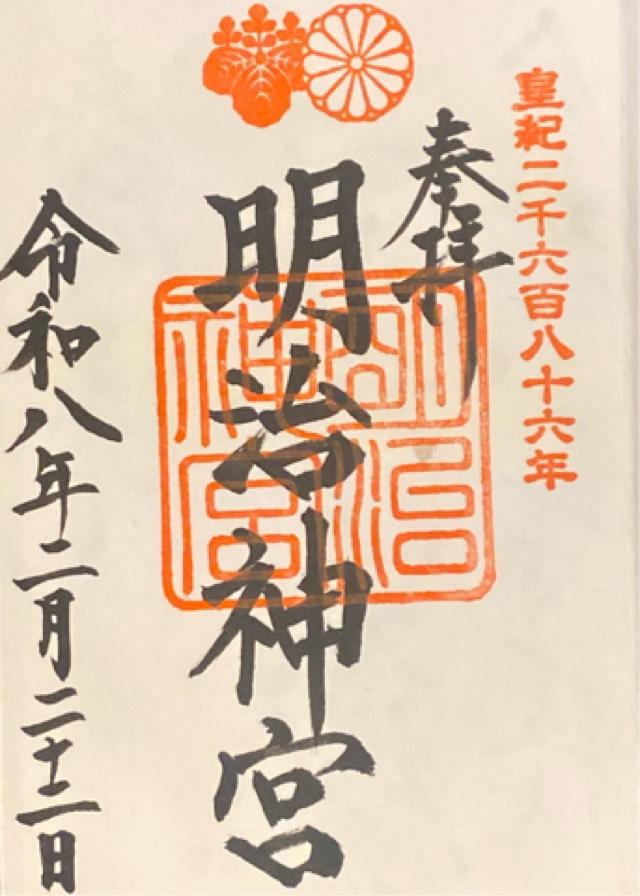 皇紀二千六百八十六年
奉拝
明治神宮
明治神宮
令和八年二月二十二日